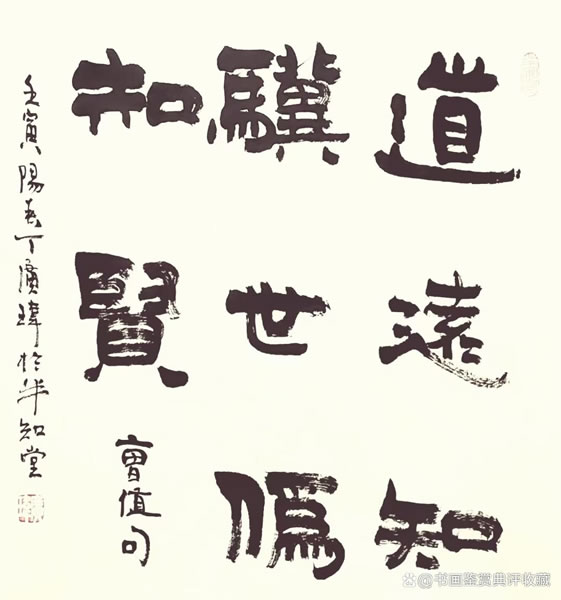 道遠知
驥世偽
知賢
曹植句
壬寅陽春丁廣瑋於半知堂
@书画鉴赏典评收藏